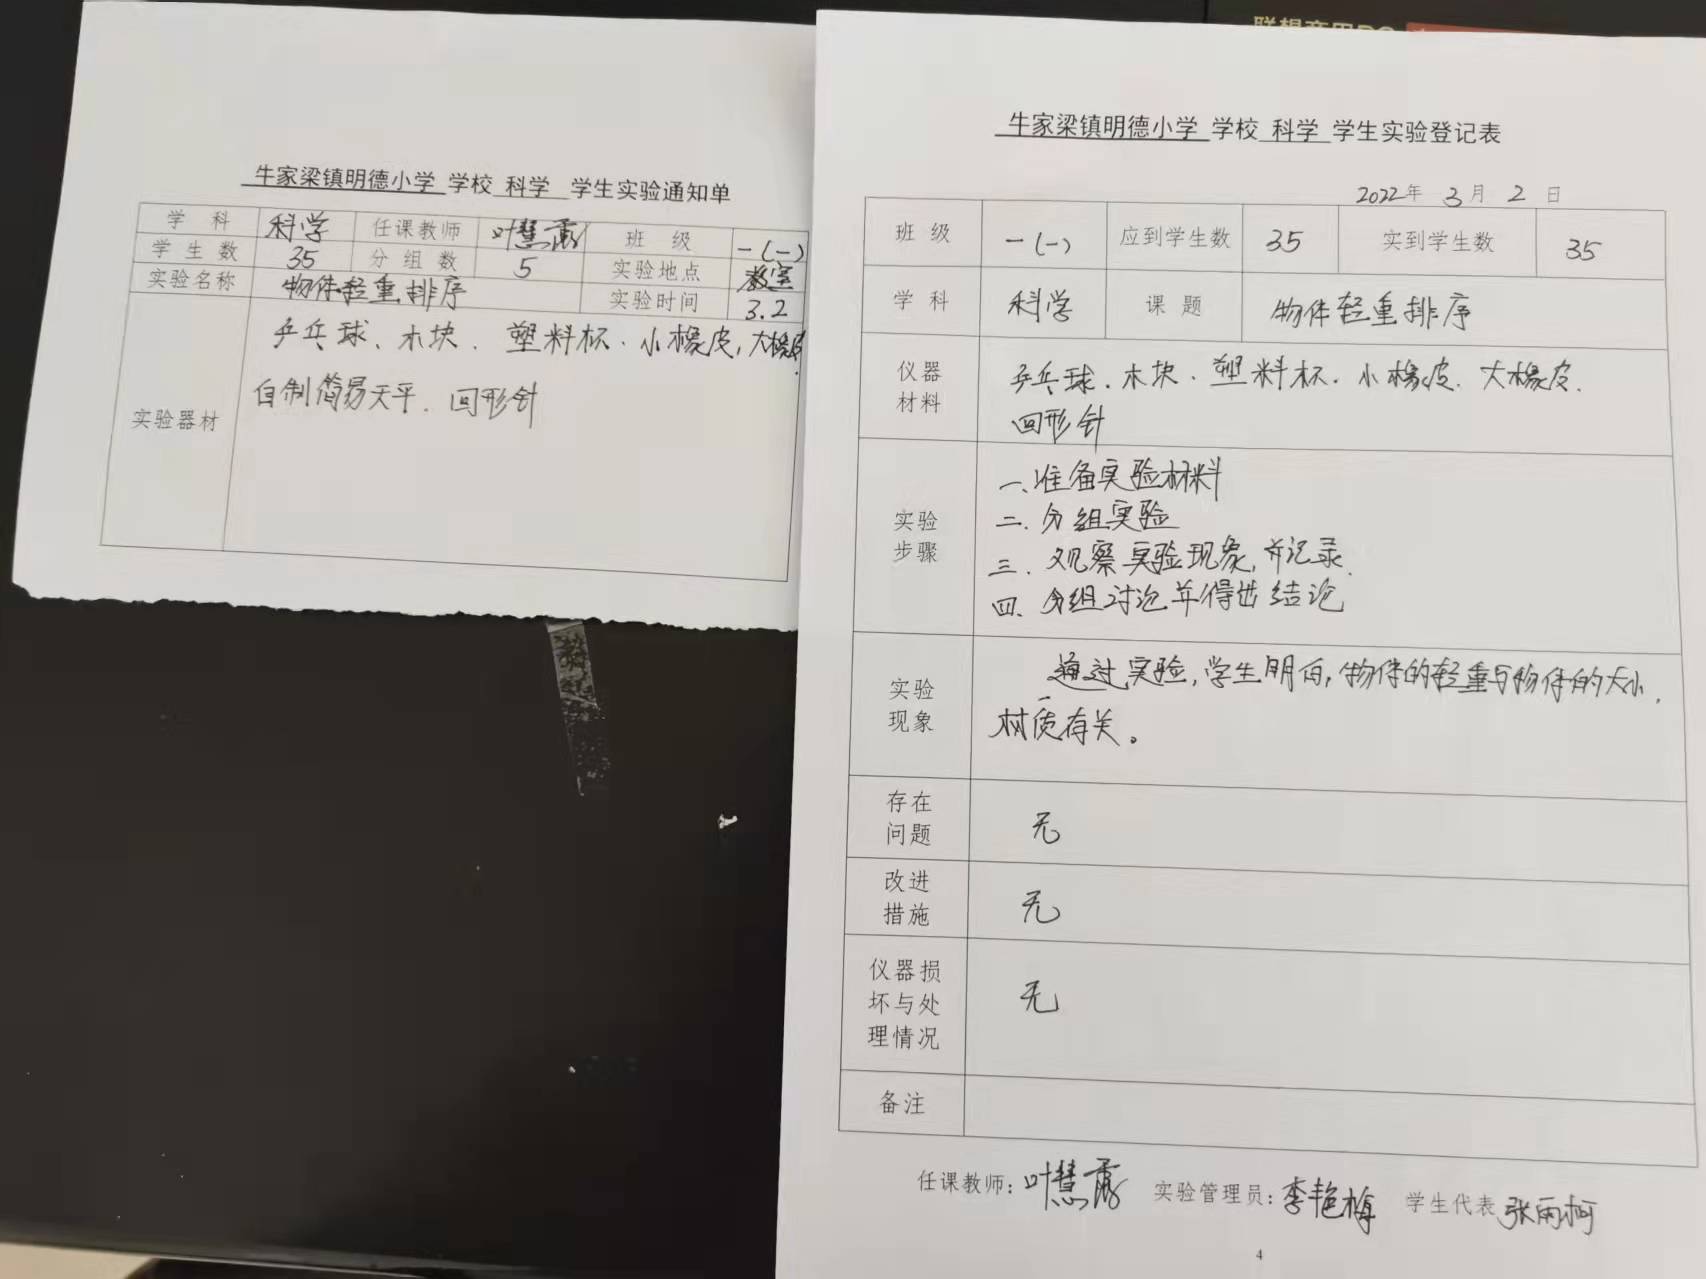 牛家梁镇明德小学 学校 科学 学生实验通知单
学科 科学 任课教师 叶慧露 班级 一(一)
学生数 35 分组数 5 实验地点 教室
实验名称 物体轻重排序 实验时间 3.2
实验器材
乒乓球、木块、塑料杯、小橡皮,大橡皮、
自制简易天平、回形针
牛家梁镇明德小学 学校 科学 学生实验登记表
2022年 3月 2日
班级 一(一) 应到学生数 35 实到学生数 35
学科 科学 课题 物体轻重排序
仪器
材料
乒乓球、木块、塑料杯、小橡皮、大橡皮、
回形针
实验
步骤
一、准备实验材料
二、分组实验
三、观察实验现象,并记录.
四、分组讨论并得出结论
实验
现象
通过实验,学生明白,物体的轻重与物体的大小,
材质有关。
存在
问题
无
改进
措施
无
仪器损
坏与处
理情况
无
备注
任课教师:叶慧露 实验管理员:李艳梅 学生代表 张雨柯
4